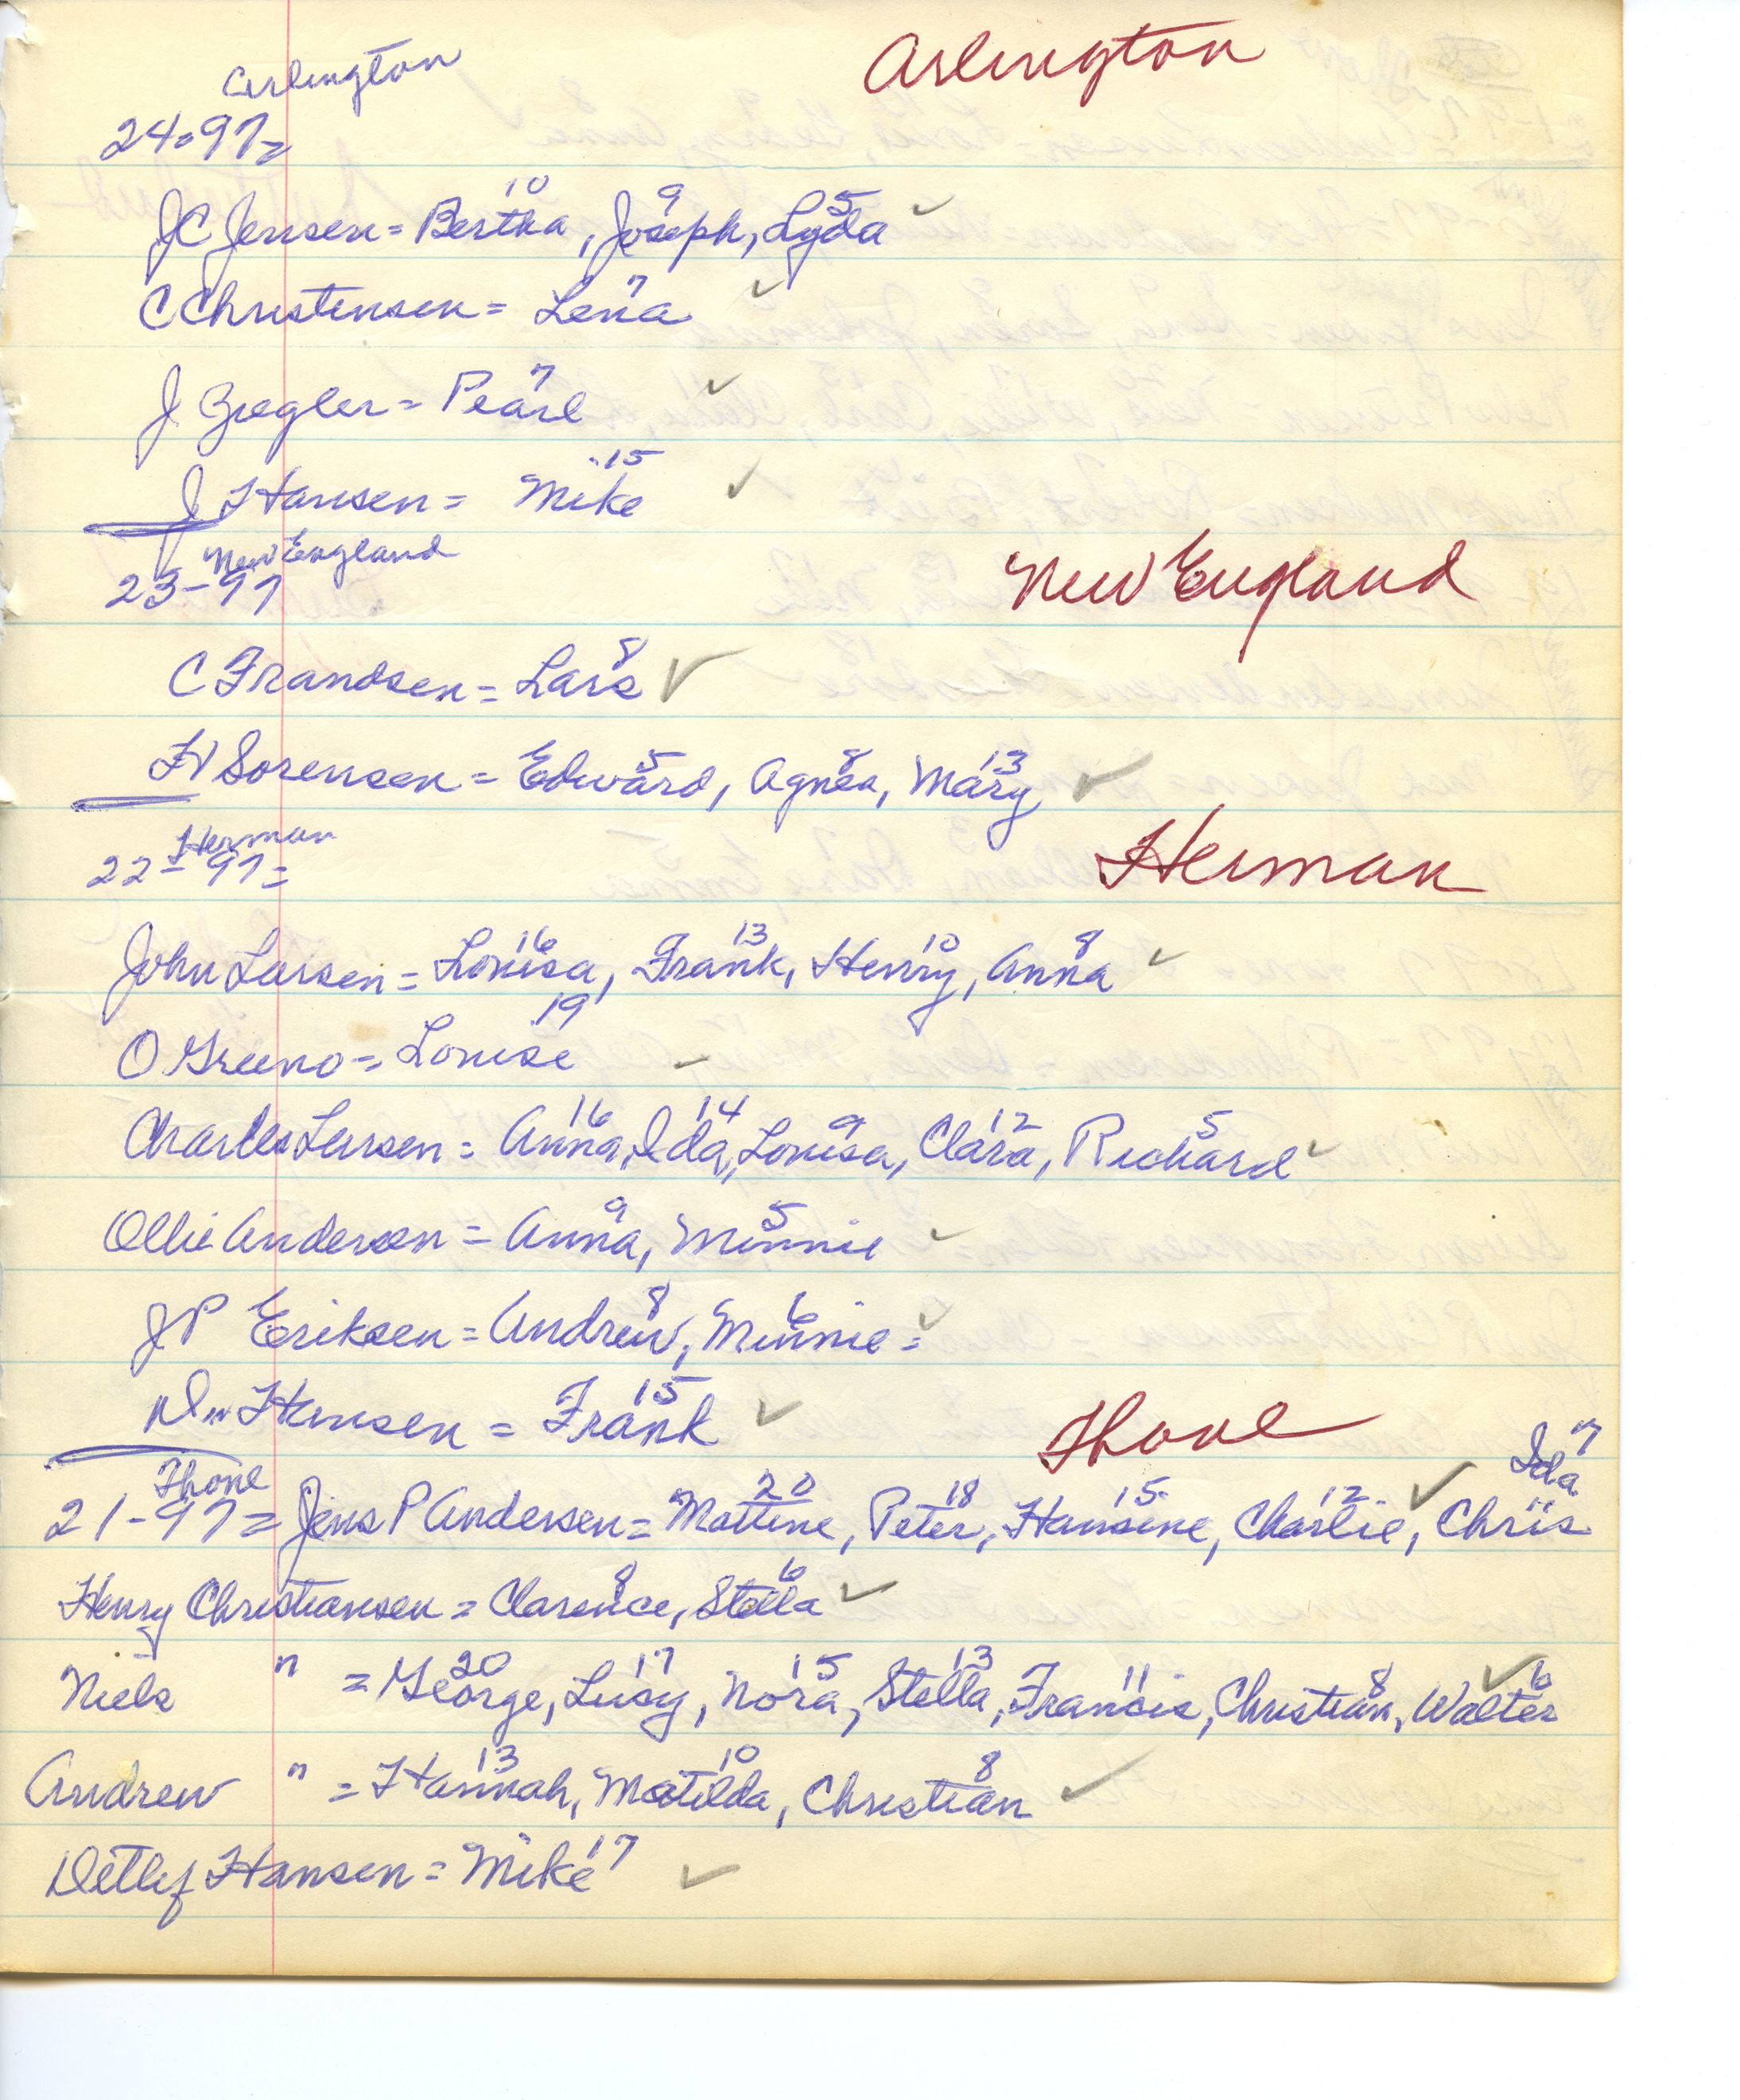 Arlington Arlington
24-97=
10 9 5
JC Jensen = Bertha, Joseph, Lyda ✓
7
C Christensen = Lena ✓
7
J Ziegler = Pearl ✓
15
J Hansen = Mike ✓
New England New England
23-97
8
C Frandsen = Lars ✓
5 8 13
H Sorensen = Edward, Agnes, Mary ✓
Herman Herman
22-97=
16 13 10 8
John Larsen = Louisa, Frank, Henry, Anna ✓
19
O Greeno = Louise
16 14 9 12 5
Charles Larsen = Anna, Ida, Louisa, Clara, Richard ✓
9 5
Ollie Andersen = Anna, Minnie ✓
8 6
JP Eriksen = Andrew, Minnie = ✓
15
Hansen = Frank ✓
Thone Thone 7
Ida
20 18 15 12 11
21-97= Jens P Andersen = Mattine, Peter, Hansine, Charlie, ✓ Chris
8 6
Henry Christiansen = Clarence, Stella ✓
20 17 15 13 11 8 6
Niels " = George, Lusy, Nora, Stella, Francis, Christian, Walter ✓
13 10 8
Andrew " = Hannah, Matilda, Christian ✓
17
Detlef Hansen = Mike ✓